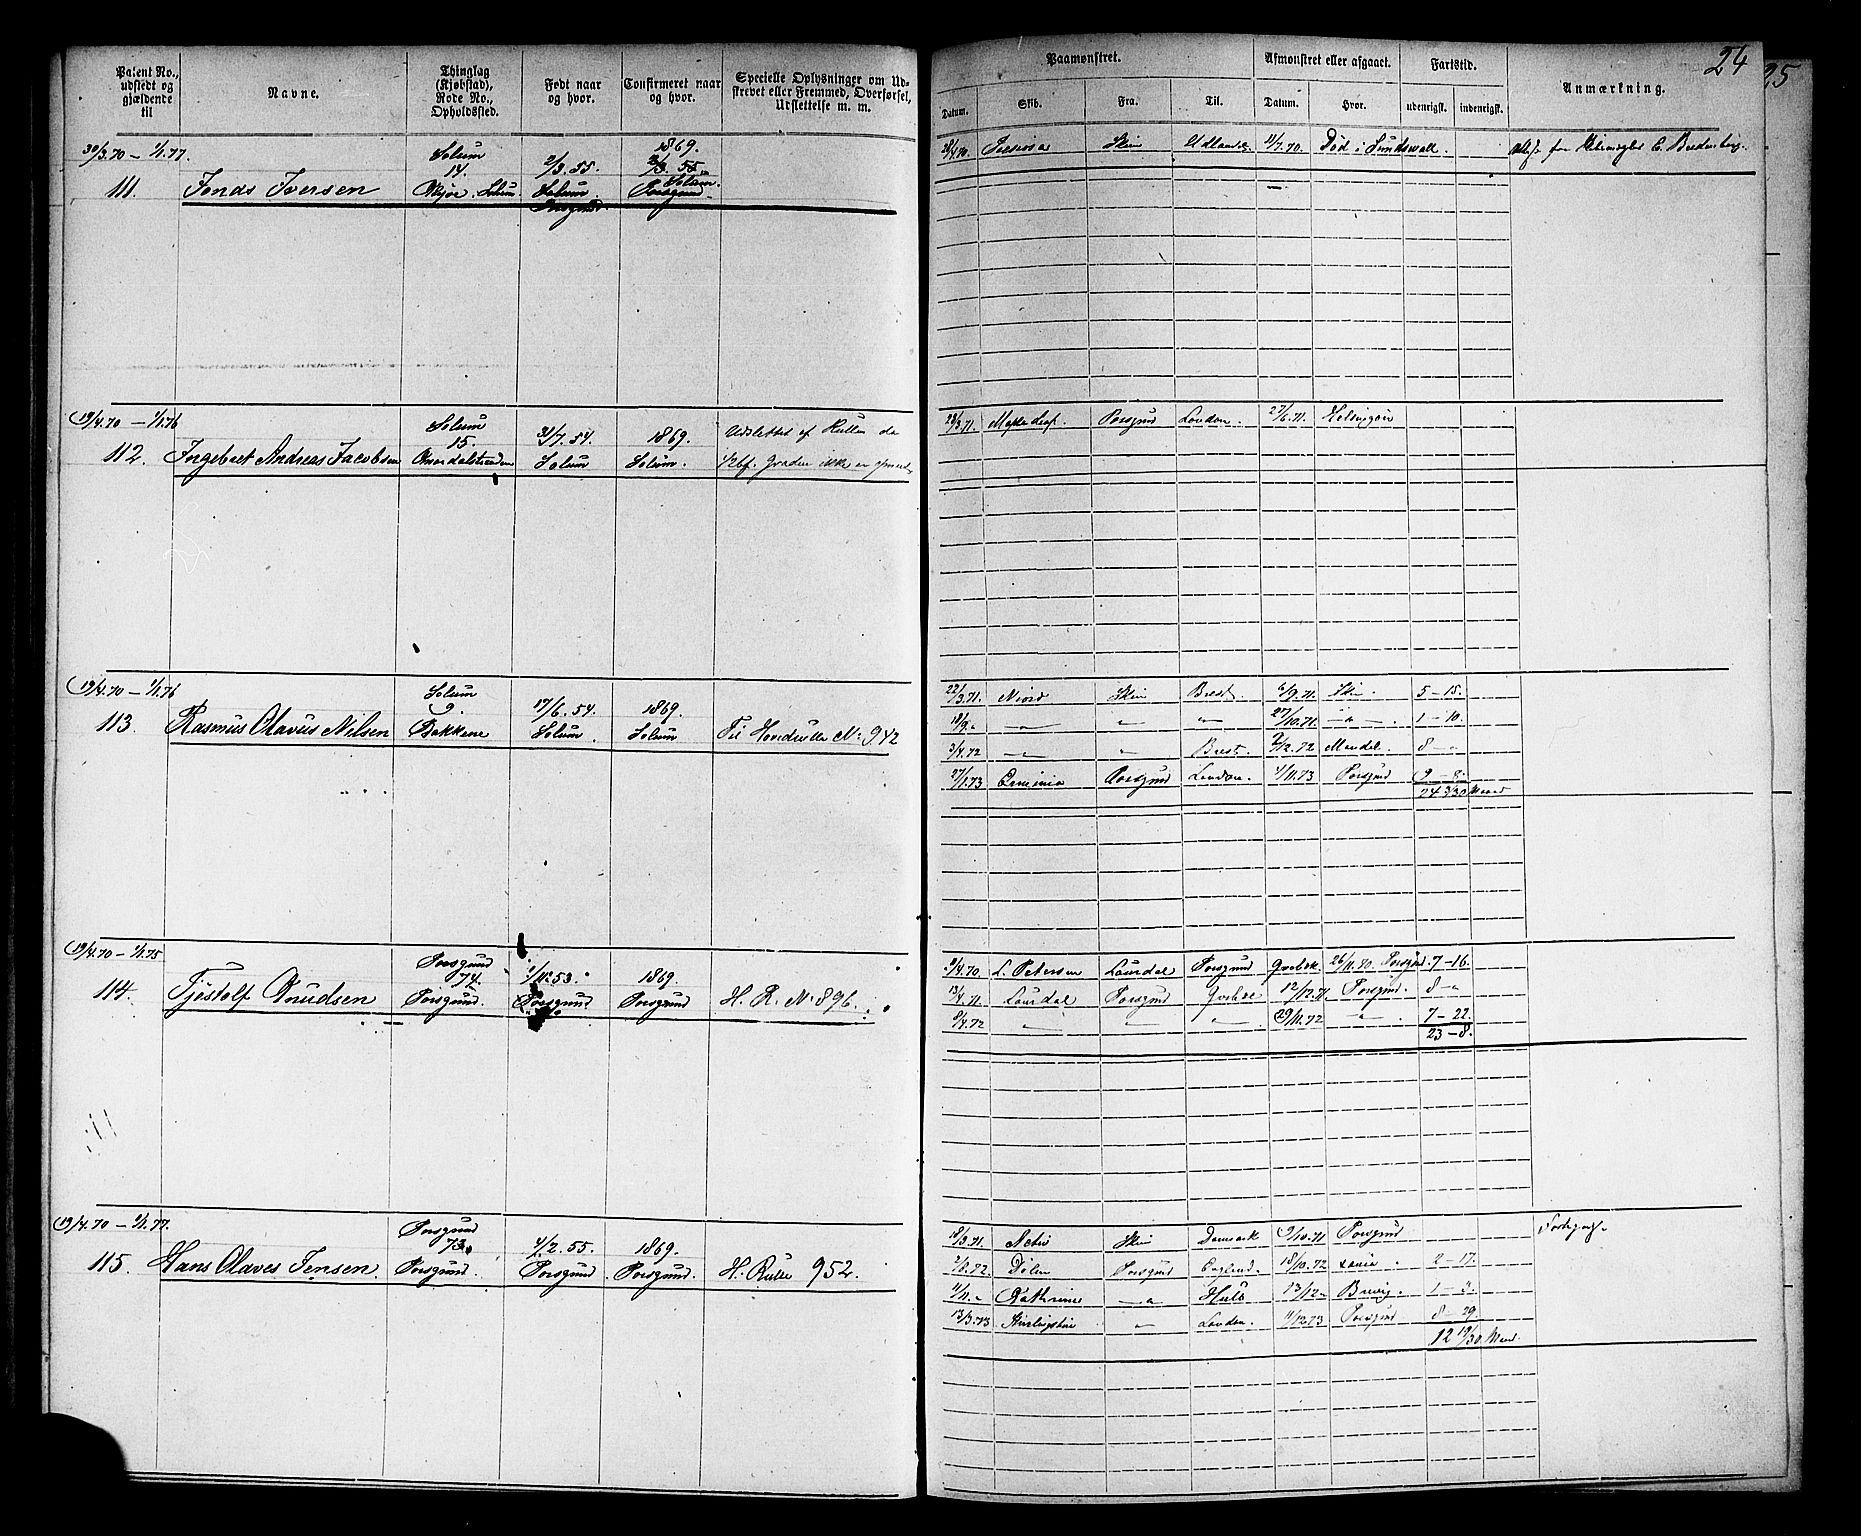 Patent No., udstedt og gjældende til
Navne.
Thinglag (Kjøbstad), Rode No., Opholdssted.
Født naar og hvor.
Confirmeret naar og hvor.
Specielle Oplysninger om Udskrevet eller Fremmed, Overførsel, Udslettelse m. m.
Paamønstret.
Afmønstret eller afgaaet.
Fartstid.
Anmærkning.
24
25
Datum.
Skib.
Fra.
Til.
Datum.
Hvor.
udenrigsk.
indenrigsk.
30/3.70 — 1/1.77.
111.
Iversen
Solum
14.
Solum
2/3.55.
Solum
1869.
2/3 55
Solum.
Porsgrund
Skien
Udlandet
11/7.70.
Død i Sundswall.
19/4.70 — 1/1.76
112.
Ingebret Andreas Jacobsen
Solum
15.
31/7.54.
Solum
1869.
Solum.
Udslettet af Rullen da
Graden ikke er
28/3.71.
Porsgrund
London.
27/6.71.
Helsingør
19/4.70 — 1/1.76
113.
Rasmus Olavus Nilsen
Solum
9.
Bakkene
17/6.54.
Solum.
1869.
Solum
Til Hovedrulle No 942
22/3.71.
Skien
Brest.
6/9.71.
Skien.
5 — 15.
18/9."
—"—
"
"
27/10.71.
—"—.
1 — 10.
3/4.72
—"—
"
Brest.
2/12.72
Mandal.
8 — "
27/1.73
Porsgrund
London.
4/11.73
Porsgrund
9 — 8.
24 3/30 Maaned
19/4.70 — 1/1.75
114.
Tjøstolf Knudsen
Porsgrund
74.
Porsgrund.
53.
Porsgrund
1869.
Porsgrund
H. R. No 896.
9/4.70
L. Petersen
Laurdal
Porsgrund
Qvebek.
26/11.70.
Porsgrund.
7 — 16.
13/4.71.
Laurdal
Porsgrund
Qvebec
12/12.71.
Porsgrund.
8 — "
8/4.72
—"—
—"—
"
29/11.72
—"—.
7 — 22.
23 — 8.
19/4.70 — 1/1.77.
115.
Hans Olaves Jensen.
Porsgrund
73.
Porsgrund.
4/2.55.
Porsgrund
1869.
Porsgrund.
H. Rulle 952.
18/3.71.
Skien
Danmark
9/10.71
Porsgrund
England.
18/10.72
2 — 17.
11/11."
Kathrine
—"
Hull
13/12"
Brevig.
1 — 3.
13/3.73
"
London.
11/12.73
Porsgrund
8 — 29
12 19/30 Maaned.